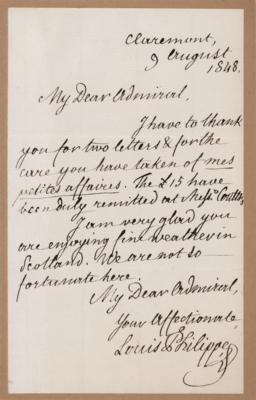 Claremont,
9 August
1848.
My Dear Admiral,
I have to thank
you for two letters & for the
care you have taken of mes
petites affaires. The £15 have
been duly remitted at Messrs Coutts.
I am very glad you
are enjoying fine weather in
Scotland. We are not so
fortunate here.
My Dear Admiral,
Your Affectionate
Louis Philippe